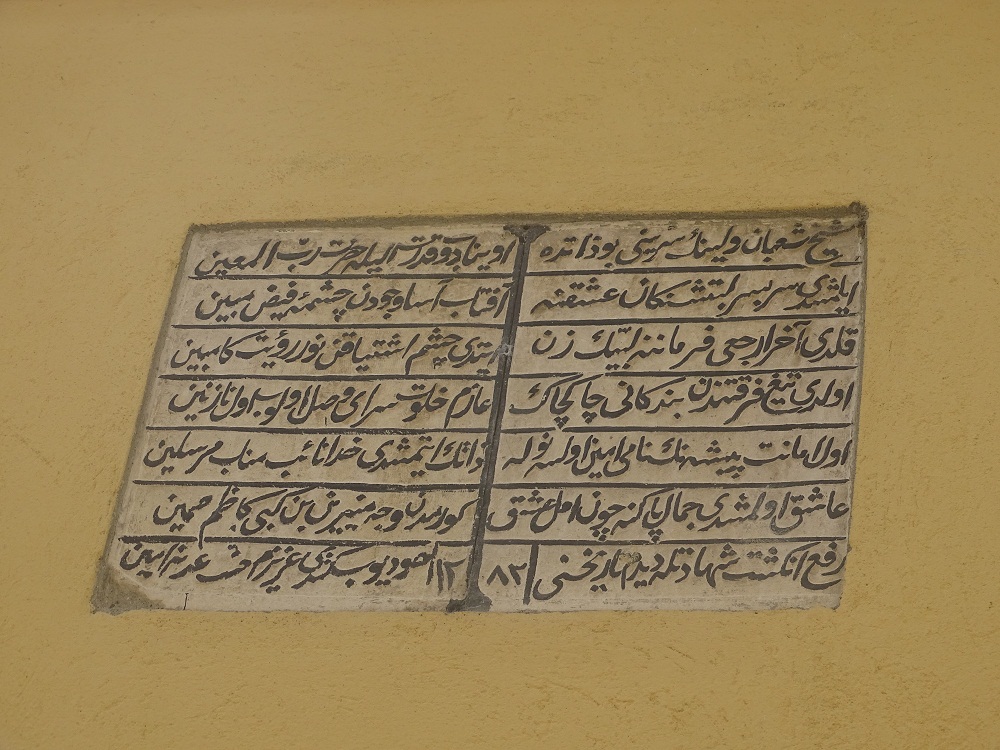 شیخ شعبان ولینك سرینی بو ذاتده
اوینادوب قدرت ایله حضرت ربّ المعین
ایلشدی سربسر لبتشنكان عشقنه
آفتاب آسا وجودن چشمهٔ فیض مبین
قلدی آخر ارجعی فرماننه لبّیك زن
ایتدی چشم اشتیاقن نور رؤیت كامبین
اولدی تیغ فرقتندن بندكانی چاك چاك
عازم خلوت سرای وصل اولوب اول نازنین
اول امانت پیشه نك نامی امین اولسه نوله
ذاتك ایتمشدی خدا نائب مناب مرسلین
عاشق اولمشدی جمال پاكنه چون اهل عشق
كورمدن وجه منیرین بن كبی كاظم همین
رفع انكشت شهادتله دیدم تاریخنی ٨٣
١١٢ هو دیوب كندی عزیزم عدنه امین